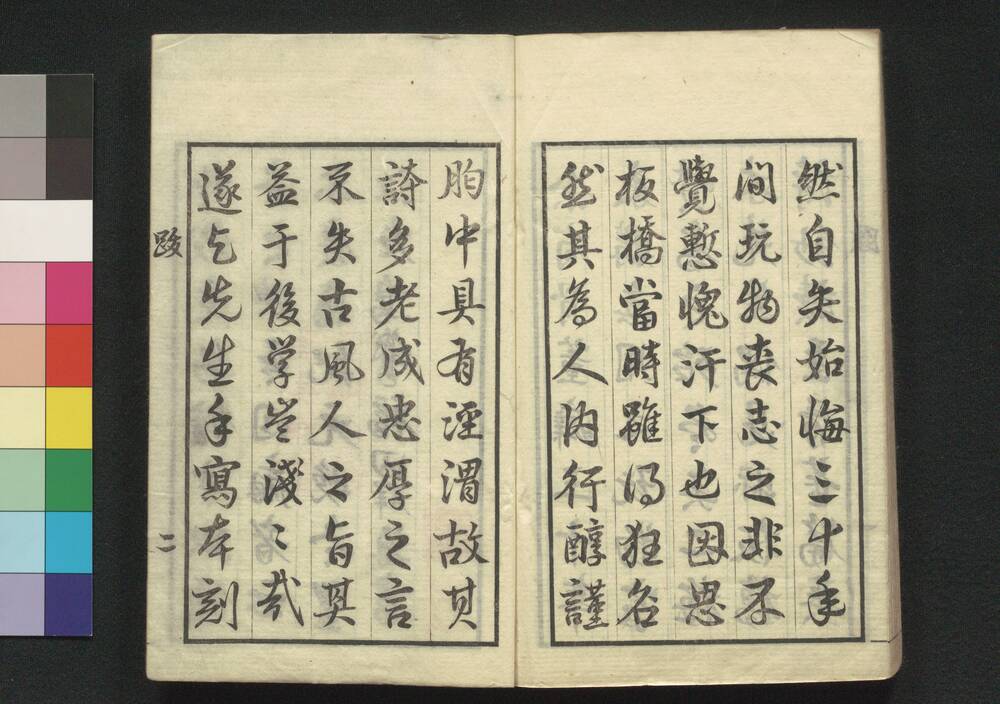 然自矢始悔三十年
间玩物丧志之非不
覺慙愧汗下也因思
板橋當時雖得狂名
然其為人内行醇謹
胷中具有涇渭故其
詩多老成忠厚之言
不失古風人之旨其
益于後学豈淺〻哉
遂乞先生手寫本刻
跋
二